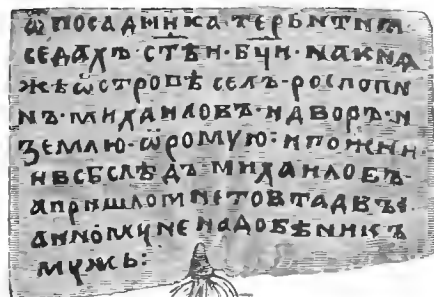 ѿ посадника · терентиꙗ
седахъ · стѣи · бчи · накнѧ
жѣѡстровѣ селъ · роспопи
нъ · михаиловъ · идворъ · и
землю · ѡромую : ипожни ·
ивсѣслѣдъ михаиловъ ·
апришломнетовтадвъ
анномуненадобѣникъ
мужь :